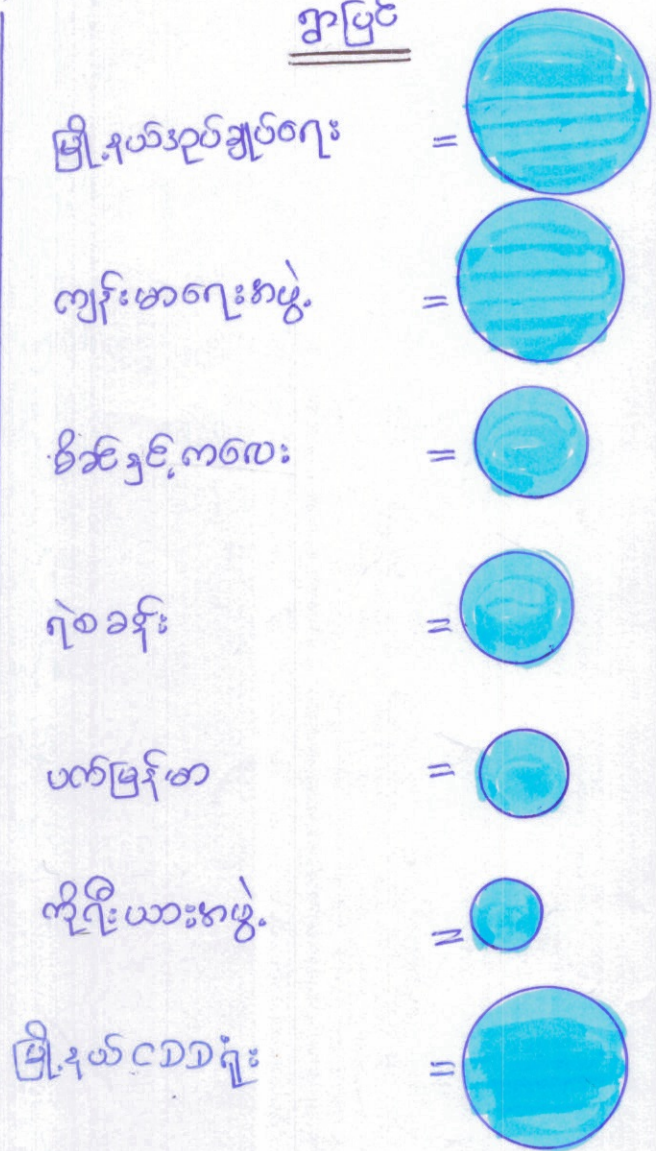 ရွာပြင်
မြို့နယ်အုပ်ချုပ်ရေး =
ကျန်းမာရေးအဖွဲ့ =
မိခင်နှင့်ကလေး =
ရဲစခန်း =
ပက်မြန်မာ =
ကိုရီးယားအဖွဲ့ =
မြို့နယ် CDD ရုံး =